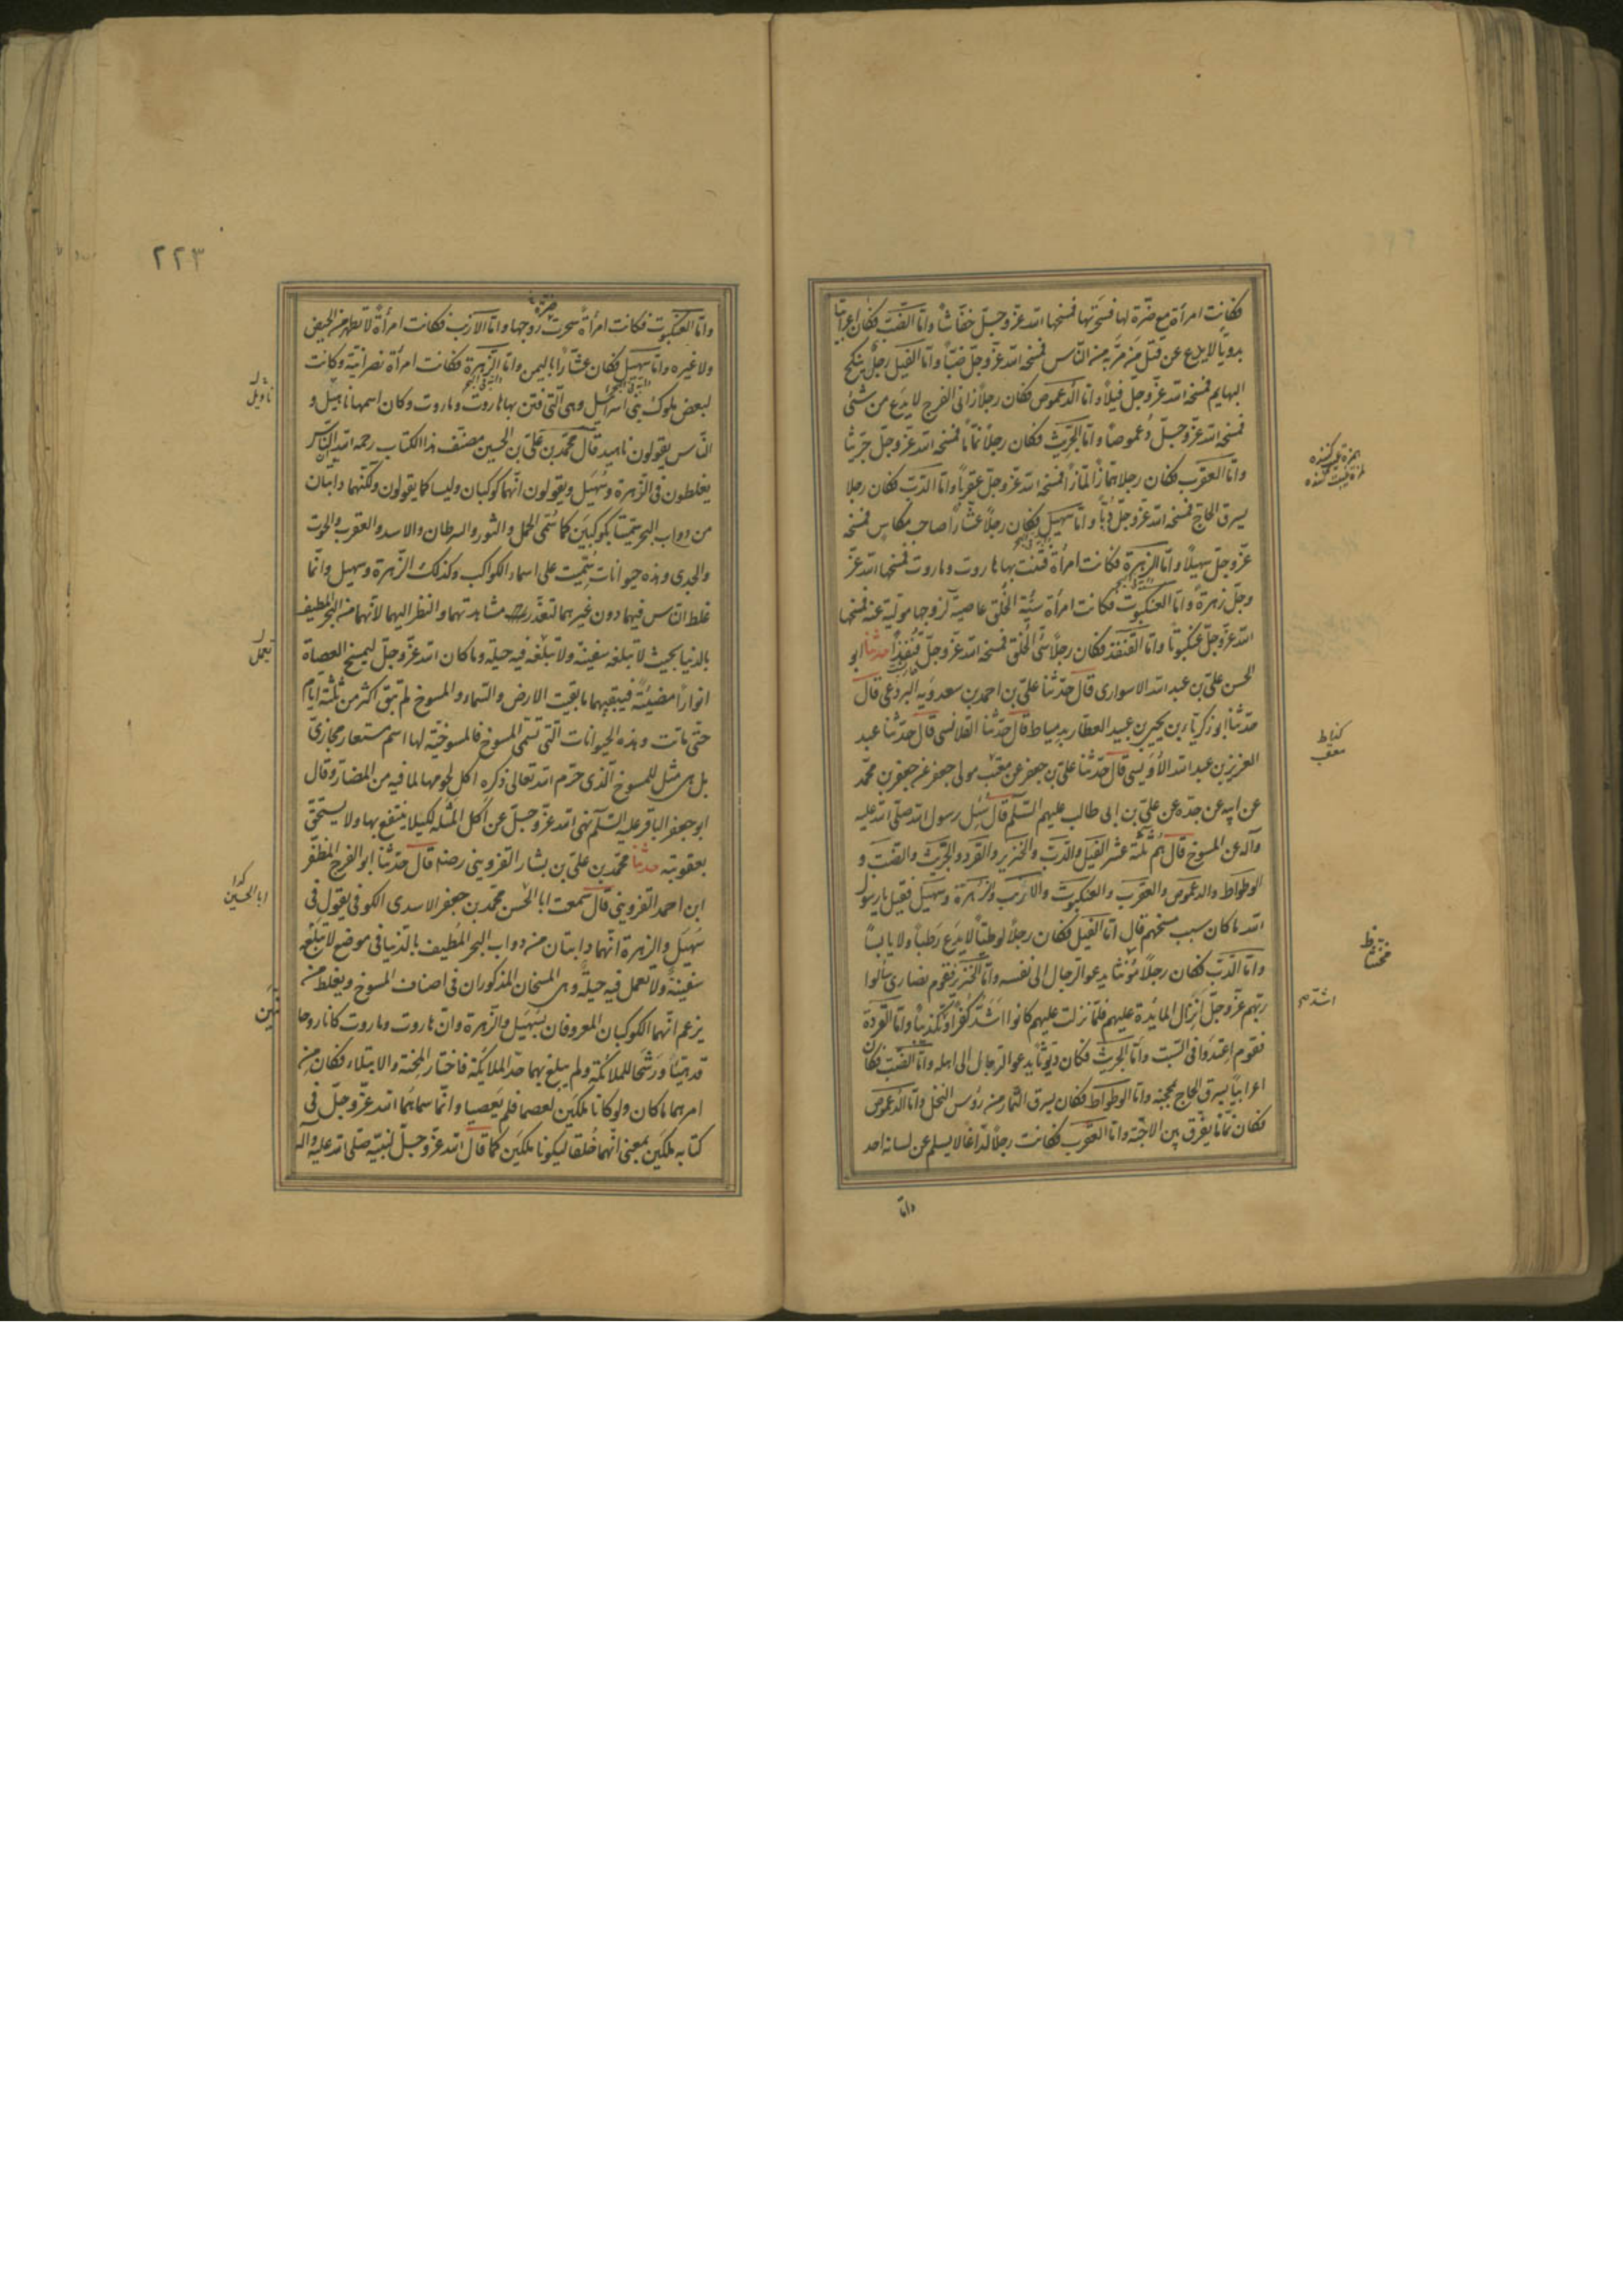 فكانت امرأة مع ضرّة لها فسحرتها فمسخها الله عزّ وجلّ خفّاشاً وامّا الضبّ فكان اعرابيّا
بدويّاً لا يدع عن قتل من مرّ به من النّاس فمسخه الله عزّ وجلّ ضبّاً وامّا الفيل رجلٌ ينكح
البهايم فمسخه الله عزّ وجلّ فيلاً وامّا الدّعموص فكان رجلاً زانى الفرج لا يدع من شئ
فمسخه الله عزّ وجلّ دُعموصاً وامّا الجرّيث فكان رجلاً نمّاماً فمسخه الله عزّ وجلّ جرّيثا
وامّا العقرب فكان رجلا همّازاً لمّازاً فمسخه الله عزّ وجلّ عقرباً وامّا الدّبّ فكان رجلا
يسرق الحاجّ فمسخه الله عزّ وجلّ دُبّاً وامّا سهيل فكان رجلاً عشّاراً صاحب مكاس فمسخه
عزّ وجلّ سهيلاً وامّا الزهرة فكانت امرأة فتنت بها هاروت وماروت فمسخها الله عزّ
وجلّ زهرةً وامّا العنكبوت فكانت امرأة سيّئة الخُلق عاصية لزوجها مولّية عنه فمسخها
الله عزّ وجلّ عنكبوتاً وامّا القنفذ فكان رجلاً سئ الخلق فمسخه الله عزّ وجلّ قنفذاً حدثنا ابو
الحسن علىّ بن عبد الله الاسوارى قال حدّثنا علىّ بن احمد بن سعدويه البردعى قال
حدثنا ابو زكرياء بن يحيى بن عبيد العطار بدمياط قال حدّثنا القلانسى قال حدّثنا عبد
العزيز بن عبد الله الأويسى قال حدّثنا على بن جعفر عن معتّب مولى جعفر عن جعفر بن محمّد
عن ابيه عن جدّه عن علىّ بن ابى طالب عليهم السّلم قال سُئل رسول الله صلّى الله عليه
وآله عن المسوخ قال هُم ثلثة عشر الفيل والدّبّ والخنزير والقرد والجرّيث والضبّ و
الوطواط والدعموص والعقرب والعنكبوت والارنب وزهرة وسهيل فقيل يا رسول
الله ما كان سبب مسخهم قال امّا الفيل فكان رجلاً لوطيّاً لا يدَع رَطباً ولا يابساً
وامّا الدّبّ فكان رجلاً مؤنّثا يدعو الرجال الى نفسه وامّا الخنزير فقوم نصارى سألوا
ربّهم عزّ وجلّ انزال المايدة عليهم فلمّا نزلت عليهم كانوا اشدّ كفراً وتكذيباً وامّا القردة
فقوم اعتدَوا فى السّبت وامّا الجرّيث فكان ديّوثاً يدعو الرّجال الى اهله وامّا الضبّ فكان
اعرابيّاً يسرق الحاج بمحجنه وامّا الوطواط فكان يسرق الثمار من رؤس النخل وامّا الدعموص
فكان نمّاماً يفرّق بين الاحبّة وامّا العقرب فكانت رجلاً لدّاغاً لا يسلم عن لسانه احد
وامّا
همزه
كننده
لمزه غيبت كننده
كذا ط
معتب
مخنثا
اشد صح
٢٢٣
وامّا العنكبوت فكانت امرأة سحرت زوجها وامّا الارنب فكانت امرأة لا تطهر من الحيض
ولا غيره وامّا سهيل فكان عشّاراً باليمن وامّا الزهرة فكانت امرأة نصرانيّة وكانت
لبعض ملوك بنى اسرائيل وهى الّتى فتن بها هاروت وماروت وكان اسمها ناهيل و
النّاس يقولون ناهيد قال محمّد بن علىّ بن الحسين مصنّف هذا الكتاب رحمه الله انّ النّاس
يغلطون فى الزّهرة وسُهيل ويقولون انّهما كوكبان وليسا كما يقولون ولكنّهما دابّتان
من دواب البحر سمّيتا بكوكبين كما سُمّى الحمل والثور والسرطان والاسد والعقرب والحوت
والجدى وهذه حيوانات سُمّيت على اسماء الكواكب وكذلك الزّهرة وسهيل وانّما
غلط النّاس فيهما دون غيرهما لتعذّر مشاهدتهما والنظر اليهما لأنهما من البحر المطيف
بالدنيا بحيث لا تبلغه سفينة ولا تبلغه فيه حيلة وما كان الله عزّ وجلّ ليمسخ العصاة
انواراً مضيئةً فيبقيهما ما بقيت الارض والسّماء والمسوخ لم تبق اكثر من ثلثة ايّام
حتّى ماتت وهذه الحيوانات الّتى تسمّى المسوخ فالمسوخيّة لها اسم مستعار مجازىّ
بل هى مثل للمسوخ الّذى حرّم الله تعالى ذكره اكل لحومها لما فيه من المضارّ وقال
ابو جعفر الباقر عليه السّلم نهى الله عزّ وجلّ عن اكل المثلة لكيلا ينتفع بها ولا يستخفّ
بعقوبته حدثنا محمّد بن علىّ بن بشار القزوينى رضه قال حدّثنا ابو الفرج المظفّر
ابن احمد القزوينى قال سمعت ابا الحسن محمّد بن جعفر الاسدى الكوفى يقول فى
سُهيل والزهرة انّهما دابتان من دواب البحر المُطيف بالدّنيا فى موضع لا تبلغه
سفينة ولا تعمل فيه حيلة وهى المسخان المذكوران فى اصناف المسوخ ويغلط من
يزعم انّهما الكوكبان المعروفان بسُهيل والزهرة وانّ هاروت وماروت كانا روحا
قد هيّئا ورشّحا للملائكة ولم يبلغ بهما حدّ الملايكة فاختارا المحنة والابتلاء فكان من
امرهما ما كان ولو كانا ملكين لعصما فلم يعصيا وانّما سماهُما الله عزّ وجلّ فى
كتابه ملكين بمعنى انّهما خُلقا ليكونا ملكين كما قال الله عزّ وجلّ لنبيّه صلّى الله عليه واله
تعمل
كذا
ابا الحسين